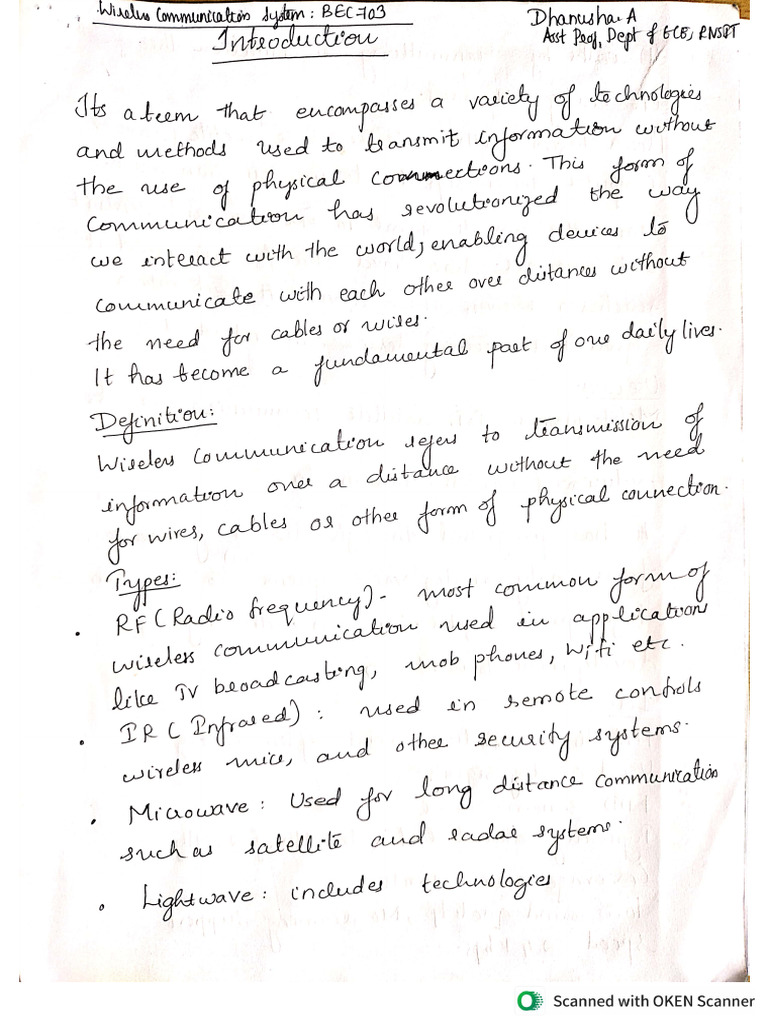 Wireless Communication System: BEC703
Dhanusha A
Asst Prof, Dept of ECE, RNSIT
Introduction
Its a term that encompasses a variety of technologies
and methods used to transmit information without
the use of physical connections. This form of
communication has revolutionized the way
we interact with the world, enabling devices to
communicate with each other over distances without
the need for cables or wires.
It has become a fundamental part of our daily lives.
Definition:
Wireless Communication refers to transmission of
information over a distance without the need
for wires, cables or other form of physical connection.
Types:
• RF (Radio frequency) - most common form of
wireless communication used in application
like TV broadcasting, mob phones, Wifi etc.
• IR (Infrared): used in remote controls
wireless mice, and other security systems.
• Microwave: Used for long distance communication
such as satellite and radar systems.
• Lightwave: includes technologies
Scanned with OKEN Scanner